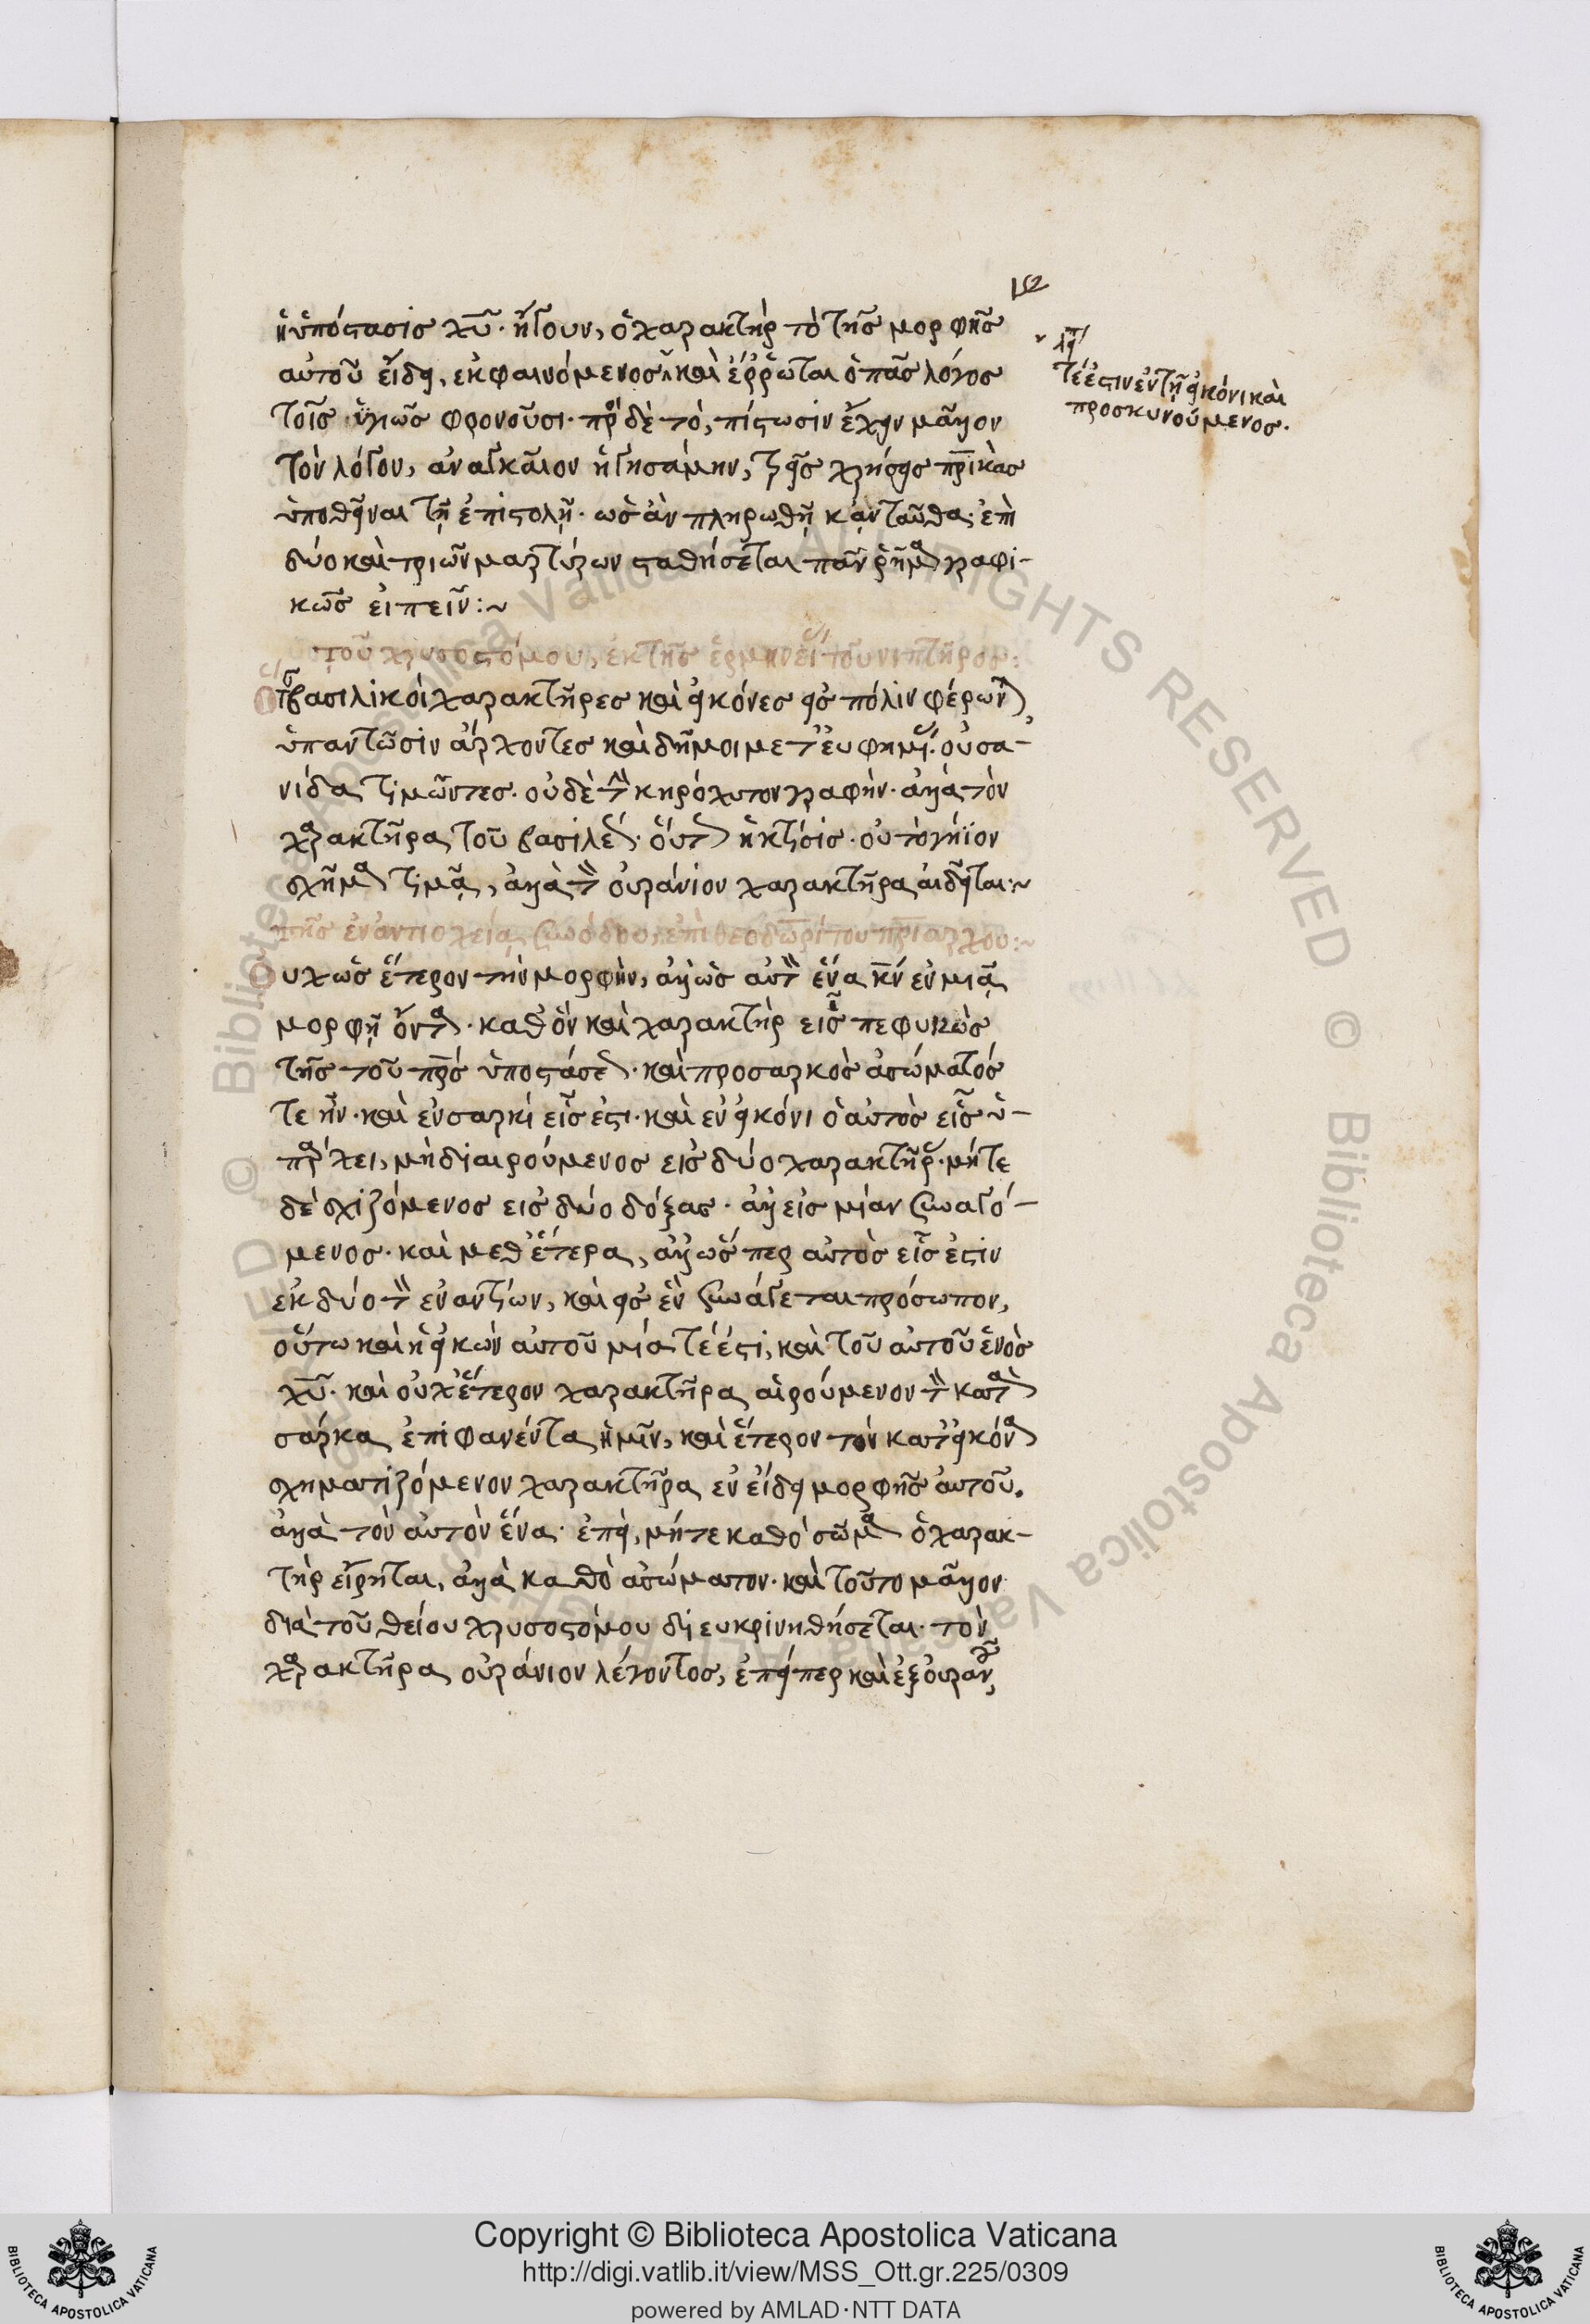 ἡ ὑπόστασις χυ̅· ἤγουν, ὁ χαρακτὴρ τῶ τῆς μορφῆς
αὐτοῦ εἴδει, ἐκφαινόμενος· καὶ ἔρρωται ὁ πᾶς λόγος
τοῖς ὑγιῶς φρονοῦσι· πρὸς δὲ τὸ, πίστωσιν ἔχειν μᾶλλον
τὸν λόγον, ἀναγκαῖον ἡγησάμην, χρήσεις πρικὰς
ὑποθεῖναι τῇ ἐπιστολῇ· ὡς ἂν πληρωθῇ κἀνταῦθα· ἐπὶ
δύο καὶ τριῶν μαρτύρων σταθήσεται πᾶν ῥῆμα γραφι-
κῶς εἰπεῖν:~
τοῦ χρυσοστόμου, ἐκ τῆς ἑρμηνείας τοῦ νιπτῆρος:
Ὅτε βασιλικοὶ χαρακτῆρες καὶ εἰκόνες εἰς πόλιν φέρωνται,
ὑπαντῶσιν ἄρχοντες καὶ δῆμοι μετ' εὐφημίας· οὐ σα-
νίδα τιμῶντες· οὐδὲ τὴν κηρόχυτον γραφήν· ἀλλὰ τὸν
χαρακτῆρα τοῦ βασιλέως· οὕτως ἡ κτίσις· οὐ τὸ γήϊον
σχῆμα τιμᾷ, ἀλλὰ τὸν οὐράνιον χαρακτῆρα αἰδεῖται:~
τῆς ἐν ἀντιοχείᾳ συνόδου, ἐπὶ θεοδωρίτου πριάρχου:~
Οὐχ ὡς ἕτερον τὴν μορφὴν, ἀλλ' ὡς αὐτὸν ἕνα κν̅ ἐν μιᾷ
μορφῇ ὄντα· καθ' ὃν καὶ χαρακτὴρ εἷς πεφυκὼς
τῆς τοῦ πρς̅ ὑποστάσεως· καὶ πρὸ σαρκὸς ἀσώματός
τε ἦν· καὶ ἐν σαρκὶ εἷς ἐστι· καὶ ἐν εἰκόνι ὁ αὐτὸς εἷς ὑ-
πάρχει, μὴ διαιρούμενος εἰς δύο χαρακτῆρας· μήτε
δὲ σχιζόμενος εἰς δύο δόξας· ἀλλ' εἰς μίαν συναγό-
μενος· καὶ μεθ' ἕτερα, ἀλλ' ὥσπερ αὐτὸς εἷς ἐστιν
ἐκ δύο τῶν ἐναντίων, καὶ εἰς ἓν συνάγεται πρόσωπον,
οὕτω καὶ ἡ εἰκὼν αὐτοῦ μία τέ ἐστι, καὶ τοῦ αὐτοῦ ἑνὸς
χυ̅· καὶ οὐχ ἕτερον χαρακτῆρα αἱρούμενον τὸν κατὰ
σάρκα ἐπιφανέντα ἡμῖν, καὶ ἕτερον τὸν κατ' εἰκόνα
σχηματιζόμενον χαρακτῆρα ἐν εἴδει μορφῆς αὐτοῦ.
ἀλλὰ τὸν αὐτὸν ἕνα· ἐπεὶ, μήτε καθὸ σῶμα ὁ χαρακ-
τὴρ εἴρηται, ἀλλὰ καθὸ ἀσώματον· καὶ τοῦτο μᾶλλον
διὰ τοῦ θείου χρυσοστόμου διευκρινηθήσεται· τὸν
χαρακτῆρα οὐράνιον λέγοντος, ἐπείπερ καὶ ἐξ οὐρανοῦ,
τέ ἐστιν ἐν τῇ εἰκόνι καὶ
προσκυνούμενος.
Copyright © Biblioteca Apostolica Vaticana
http://digi.vatlib.it/view/MSS_Ott.gr.225/0309
powered by AMLAD·NTT DATA